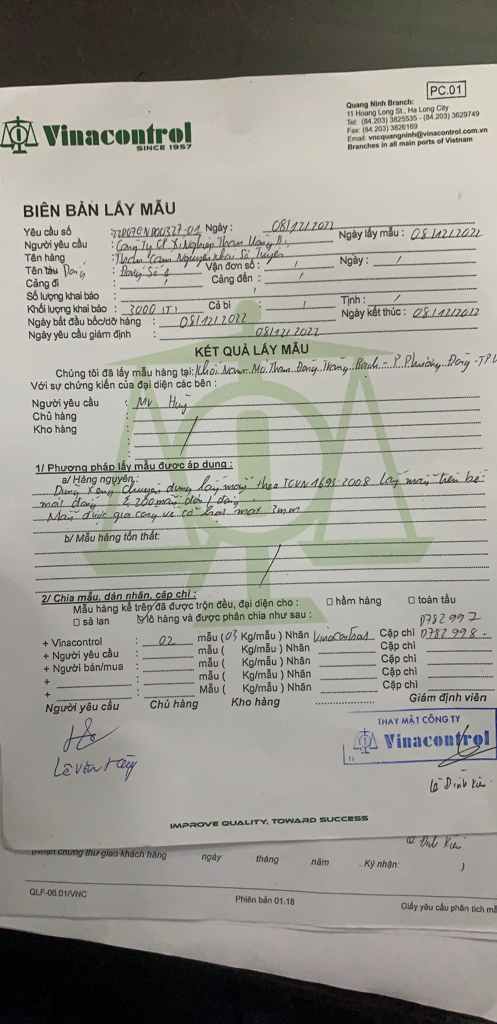 PC.01
Vinacontrol
SINCE 1957
Quang Ninh Branch:
11 Hoang Long St., Ha Long City
Tel: (84.203) 3825535 - (84.203) 3629749
Fax: (84.203) 3826169
Email: vncquangninh@vinacontrol.com.vn
Branches in all main ports of Vietnam
BIÊN BẢN LẤY MẪU
Yêu cầu số : Ngày : 08/12/2022
Người yêu cầu : Công Ty CP Xí Nghiệp Than Uông Bí Ngày lấy mẫu : 08/12/2022
Tên hàng : Than Cám Nguyên Khai Sơ Tuyển
Tên tàu Đống : Đống Số 1 Vận đơn số : / Ngày : /
Cảng đi : / Cảng đến : /
Số lượng khai báo : /
Khối lượng khai báo : 3000 (T) Cả bì : / Tịnh : /
Ngày bắt đầu bốc/dỡ hàng : 08/12/2022 Ngày kết thúc : 08/12/2022
Ngày yêu cầu giám định : 08/12/2022
KẾT QUẢ LẤY MẪU
Chúng tôi đã lấy mẫu hàng tại: Khai Nam Mỏ Than Đồng Tràng Bạch - P. Phương Đông - TP
Với sự chứng kiến của đại diện các bên :
Người yêu cầu : Mr Huy
Chủ hàng :
Kho hàng :
1/ Phương pháp lấy mẫu được áp dụng :
a/ Hàng nguyên: Dùng xẻng chuyên dụng lấy mẫu theo TCVN 1693:2008 lấy mẫu trên bề
mặt đống 200 mẫu đơn / đống
Mẫu được gia công về cỡ hạt max 3mm
b/ Mẫu hàng tổn thất:
2/ Chia mẫu, dán nhãn, cặp chì :
Mẫu hàng kể trên đã được trộn đều, đại diện cho : □ hầm hàng □ toàn tầu
□ sà lan ☑ lô hàng và được phân chia như sau : 0782997
+ Vinacontrol : 02 mẫu (03 Kg/mẫu) Nhãn Vinacontrol Cặp chì 0782998
+ Người yêu cầu : mẫu ( Kg/mẫu ) Nhãn Cặp chì
+ Người bán/mua : mẫu ( Kg/mẫu ) Nhãn Cặp chì
+ : mẫu ( Kg/mẫu ) Nhãn Cặp chì
+ : Mẫu ( Kg/mẫu ) Nhãn Cặp chì
Người yêu cầu Chủ hàng Kho hàng Giám định viên
THAY MẶT CÔNG TY
Vinacontrol
11
Lê Văn
Lê Đình
IMPROVE QUALITY, TOWARD SUCCESS
chứng thư giao khách hàng ngày tháng năm . Ký nhận: )
QLF-06.01/VNC Phiên bản 01.18 Giấy yêu cầu phân tích